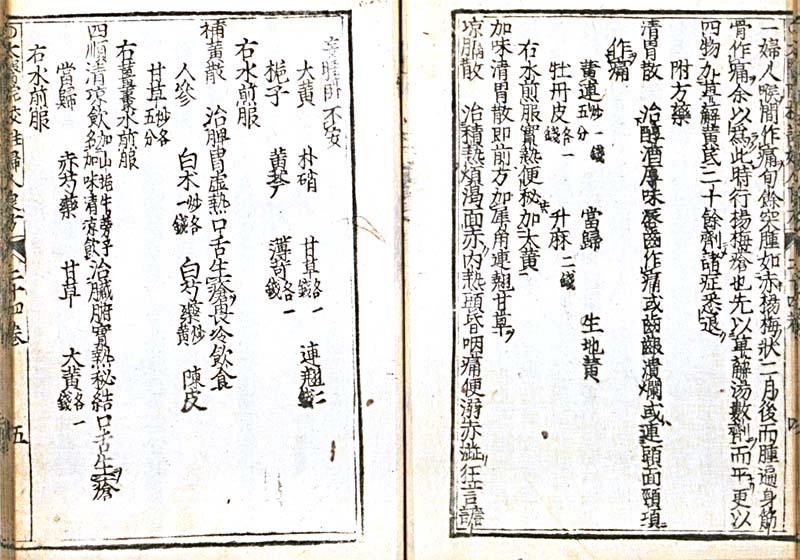 一婦人㗋間作痛旬餘突腫如赤楊梅狀二月後而腫遍身筋
骨作痛余以爲此時行楊梅瘡也先以萆薢湯數劑而平更以
四物加萆薢黃芪二十餘劑諸症悉退
附方藥
清胃散 治醇酒厚味唇齒作痛或齒齦潰爛或連頭面頸項
作痛
黄連炒一錢五分 當歸 生地黄
牡丹皮各一錢 升麻二錢
右水煎服實熱便秘加大黄
加味清胃散即前方加犀角連翹甘草
凉膈散 治積熱煩渴面赤内熱頭昏咽痛便溺赤澁狂言譫
語睡卧不安
大黄 朴硝 甘草各一錢 連翹二錢
梔子 黄芩 薄荷各一錢
右水煎服
補黄散 治脾胃虚熱口舌生瘡畏冷飲食
人参 白术炒各一錢 白芍藥炒黄 陳皮
甘草炒各五分
右薑棗水煎服
四順清凉飲 治臟腑實熱秘結口舌生瘡
當歸 赤芍藥 甘草 大黄各一錢
右水煎服
婦人良方 二十四卷 五